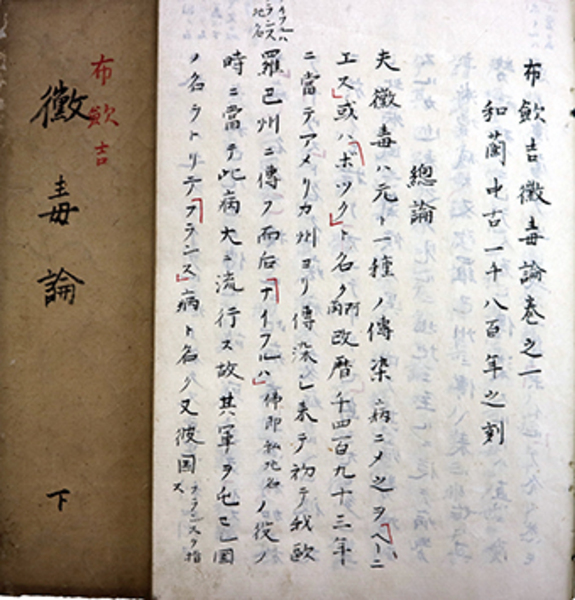 布歛吉
黴毒論
下
布歛吉黴毒論巻之一
和蘭中古一千八百年之刻
總論
夫黴毒ハ元ト一種ノ傳染病ニメ之ヲ
エス或ハ「ポック」ト名ク 改暦千四百九十三年
ニ當テアメリカ州ヨリ傳染シ来テ初テ我歐
羅巴州ニ傳フ而后「ナイフル」ハ佛郎 地名ノ役ノ
時ニ當テ此病大ニ流行ス故其軍ヲ 国
ノ名ヲトリテ「フランス」病ト名ク又彼国 フランスヲ指ス
イフルハ
フランス
地名